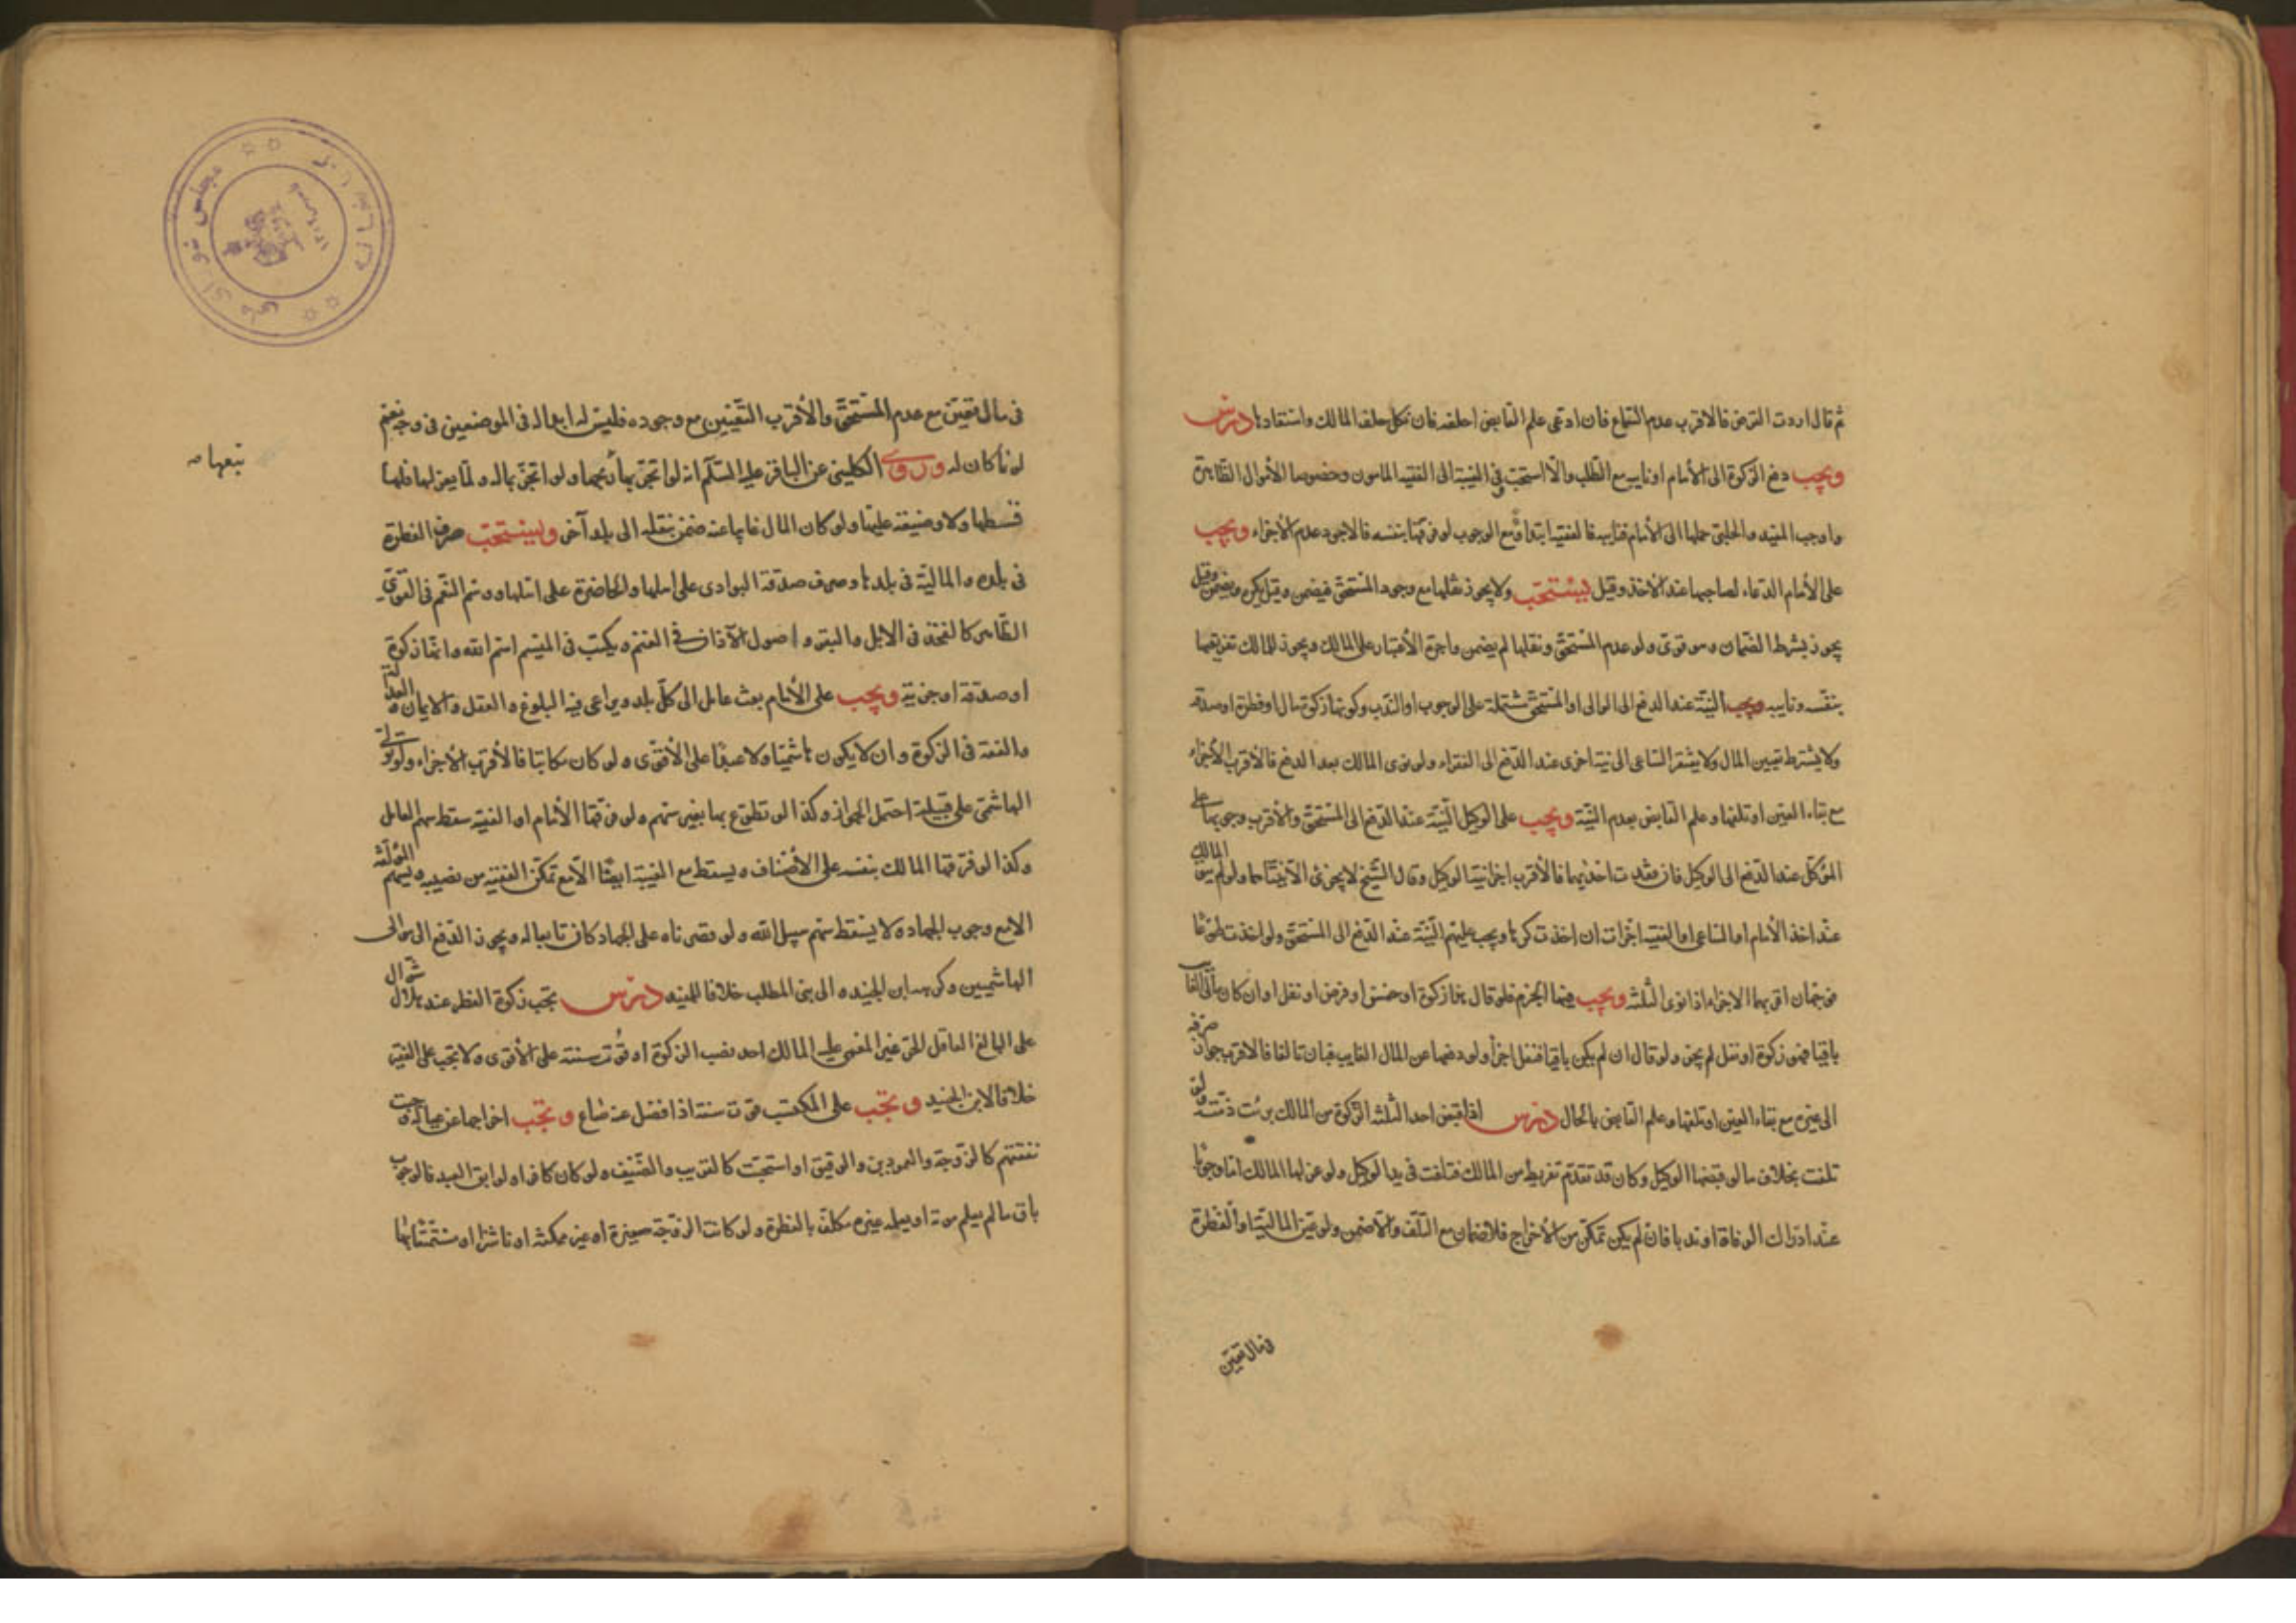 ثم قال اردت القرض فالاقرب عدم السماع فان ادعى علم القابض احلفه فان نكل حلف المالك واستعادها درس
ويجب دفع الزكوة الى الأمام او نايبه مع الطلب والا استحب وفي الغيبة الى الفقيه المامون وخصوصا الأموال الظاهرة
واوجب المفيد والحلبي حملها الى الأمام فنايبه فالفقيه ابتداء ومع الوجوب لو فرقها بنفسه فالاجود عدم الأجزاء ويجب
على الأمام الدعاء لصاحبها عند الاخذ وقيل يستحب ولا يجوز نقلها مع وجود المستحق فيضمن وقيل يكره ويضمن وقيل
يجوز بشرط الضمان وهو قوى ولو عدم المستحق ونقلها لم يضمن واجرة الأعتبار على المالك ويجوز للمالك تفريقها
بنفسه ونايبه ويجب النية عند الدفع الى الوالى او المستحق مشتملة على الوجوب او الندب وكونها زكوة مال او فطرة او صدقة
ولا يشترط تعيين المال ولا يفتقر الساعى الى نية اخرى عند الدفع الى الفقراء ولو نوى المالك بعد الدفع فالأقرب الأجزاء
مع بقاء العين او تلفها وعلم القابض بعدم النية ويجب على الوكيل النية عند الدفع الى المستحق والأقرب وجوبها على
الموكل عند الدفع الى الوكيل فان فقدت احديهما فالأقرب اجزا نية الوكيل وقال الشيخ لا يجزئ الا نيتاهما ولو لم ينو المالك
عند اخذ الأمام او الساعى او الفقيه اجزات ان اخذت كرها ويجب عليهم النية عند الدفع الى المستحق ولو اخذت طوعا
فوجهان اقربهما الاجزاء اذا نوى الثلثة ويجب فيها الجزم فلو قال هذا زكوة او خمس او فرض او نفل او ان كان مالى الغايب
باقيا فهو زكوة او نفل لم يجز ولو قال ان لم يكن باقيا فنفل اجزأ ولو دفعها عن المال الغايب فبان تالفا فالاقرب جواز صرفه
الى غيره مع بقاء العين او تلفها وعلم القابض بالحال درس اذا قبض احد الثلثة الزكوة من المالك برئت ذمته ولو
تلفت بخلاف ما لو قبضها الوكيل وكان قد تقدم تفريط من المالك فتلفت في يد الوكيل ولو عزلها المالك اما وجوبا
عند ادراك الوفاة او ندبا فان لم يكن تمكن من الأخراج فلا ضمان مع التلف والا ضمن ولو عين المالية او الفطرة
في مال تعين
في مال تعين مع عدم المستحق والأقرب التعيين مع وجوده فليس له ابداله في الموضعين في وجه نعم
له نما كان له وروى الكلينى عن الباقر عليه السلم انه لو اتجر بها ربحها ولو اتجر بماله ولما يعزلها فلها
تبعها صه
قسطها ولا وضيعة عليها ولو كان المال غايبا عنه ضمن بنقله الى بلد آخر ويستحب صرف الفطرة
في بلده والمالية في بلدها وصرف صدقة البوادى على اهلها والحاضرة على اهلها ووسم النعم في القوى
الظاهر كالفخذ في الابل والبقر واصول الآذان في الغنم ويكتب في الميسم اسم الله وانها زكوة
او صدقة او جزية ويجب على الأمام بعث عامل الى كل بلد ويراعى فيه البلوغ والعقل والايمان والعدالة
والفقه في الزكوة وان لا يكون هاشميا ولا عبدا على الأقوى ولو كان مكاتبا فالأقرب الأجزاء ولو تولى
الهاشمى على قبيلة احتمل الجواز وكذا لو تطوع بها بغير سهم ولو فرقها الأمام او الفقيه سقط سهم العامل
وكذا لو فرقها المالك بنفسه على الأصناف ويسقط مع الغيبة ايضا الا مع تمكن الفقيه من نصيبه وسهم المؤلفة
الا مع وجوب الجهاد ولا يسقط سهم سبيل الله ولو قصرناه على الجهاد كان تابعا له ويجوز الدفع الى موالى
الهاشميين وكرهه ابن الجنيد والى بنى المطلب خلافا للمفيد درس تجب زكوة الفطر عند هلال شوال
على البالغ العاقل الحر غير المغمى عليه المالك احد نصب الزكوة او قوت سنته على الأقوى ولا تجب على الفقير
خلافا لابن الجنيد وتجب على المكتسب قوت سنته اذا فضل عنه صاع وتجب اخراجها عن عياله وجبت
نفقتهم كالزوجة والعمودين والرقيق او استحبت كالقريب والضيف ولو كان كافرا ولو ابق العبد فالوجوب
باق ما لم يعلم موته او يعله غيره مكلف بالفطرة ولو كانت الزوجة صغيرة او غير ممكنة او ناشزا او مستمتعا بها